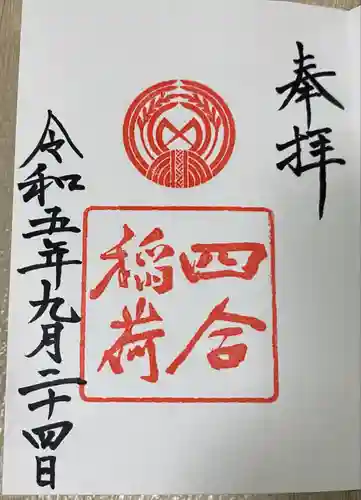 奉拝
四合
稲荷
令和五年九月二十四日